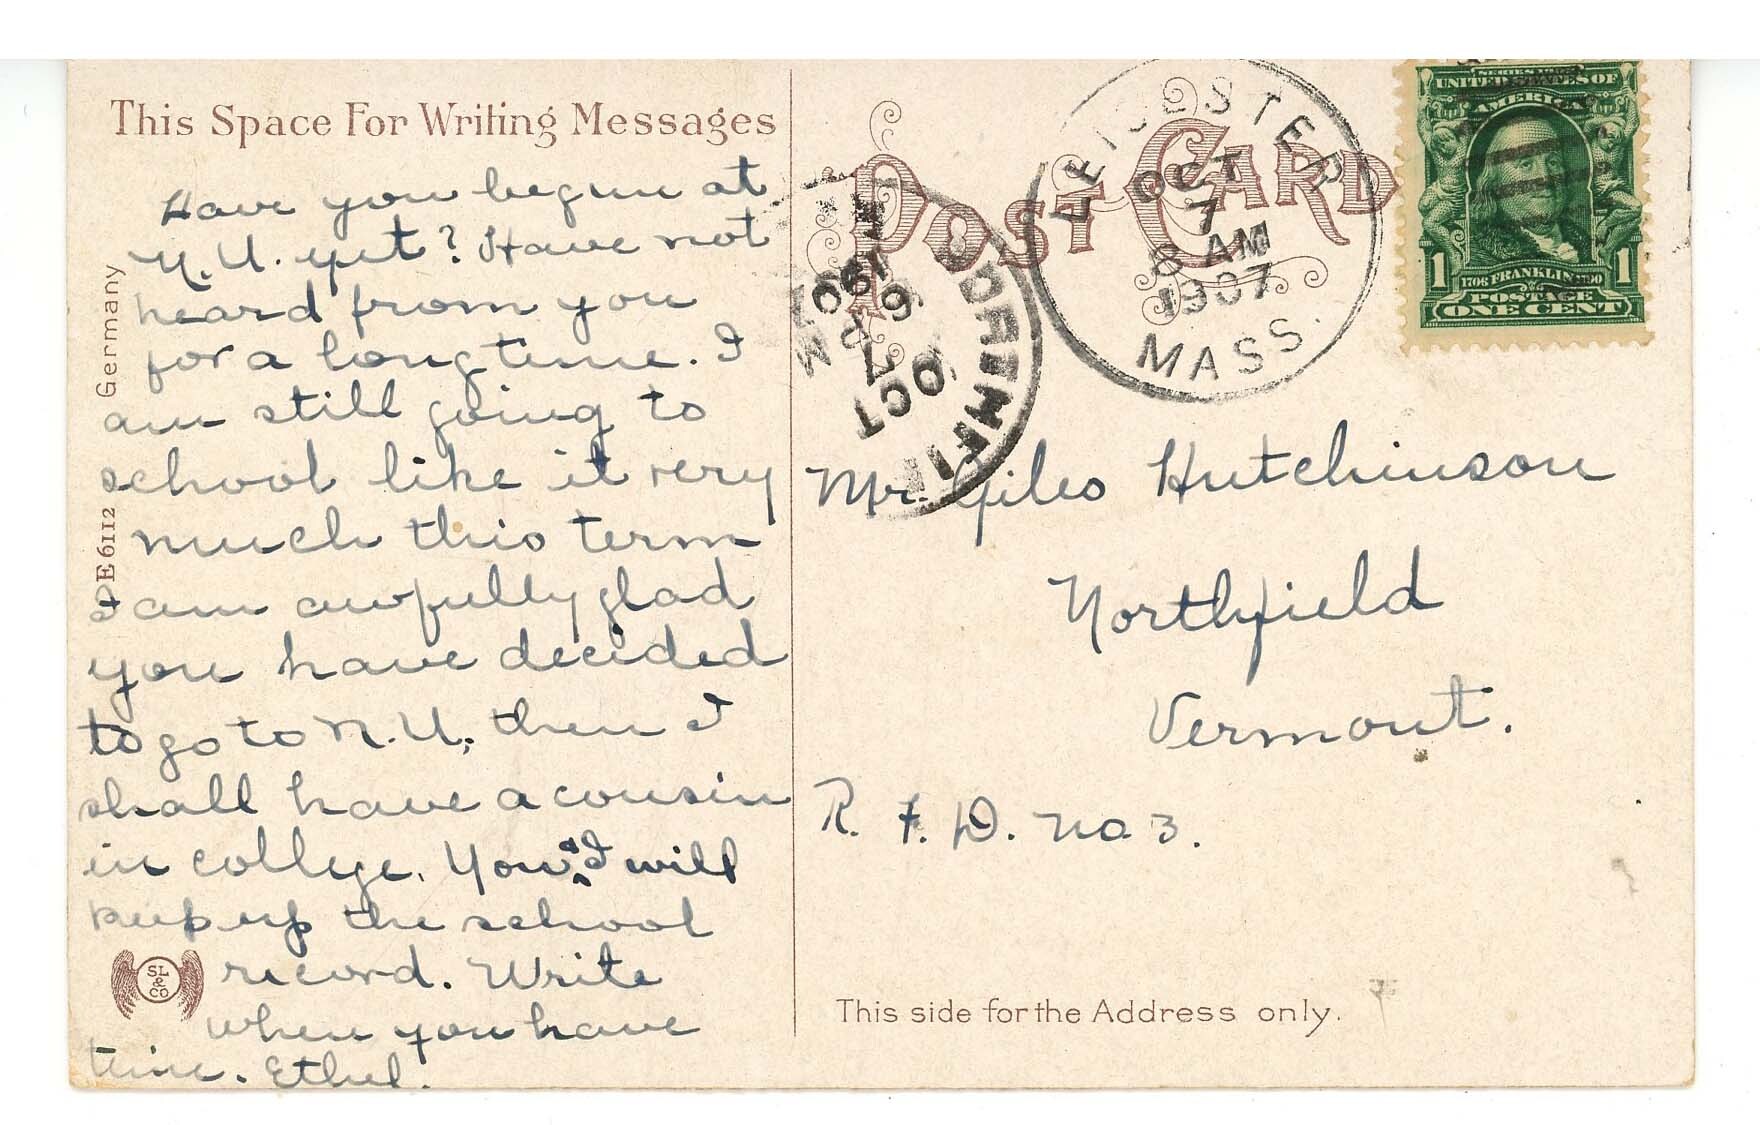 This Space For Writing Messages
Have you begun at
N. U. yet? Have not
heard from you
for a long time. I
am still going to
school like it very
much this term
I am awfully glad
you have decided
to go to N. U., then I
shall have a cousin
in college. You & I will
keep up the school
record. Write
when you have
time. Ethel.
E 6112 Germany
SL
&
CO
POST CARD
LEICESTER
OCT
7
8 AM
1907
MASS.
OCT
7
1907
SERIES 1902
UNITED STATES OF
AMERICA
1706 FRANKLIN 1790
1 POSTAGE 1
ONE CENT
Mr. Giles Hutchinson
Northfield
Vermont.
R. F. D. no. 3.
This side for the Address only.